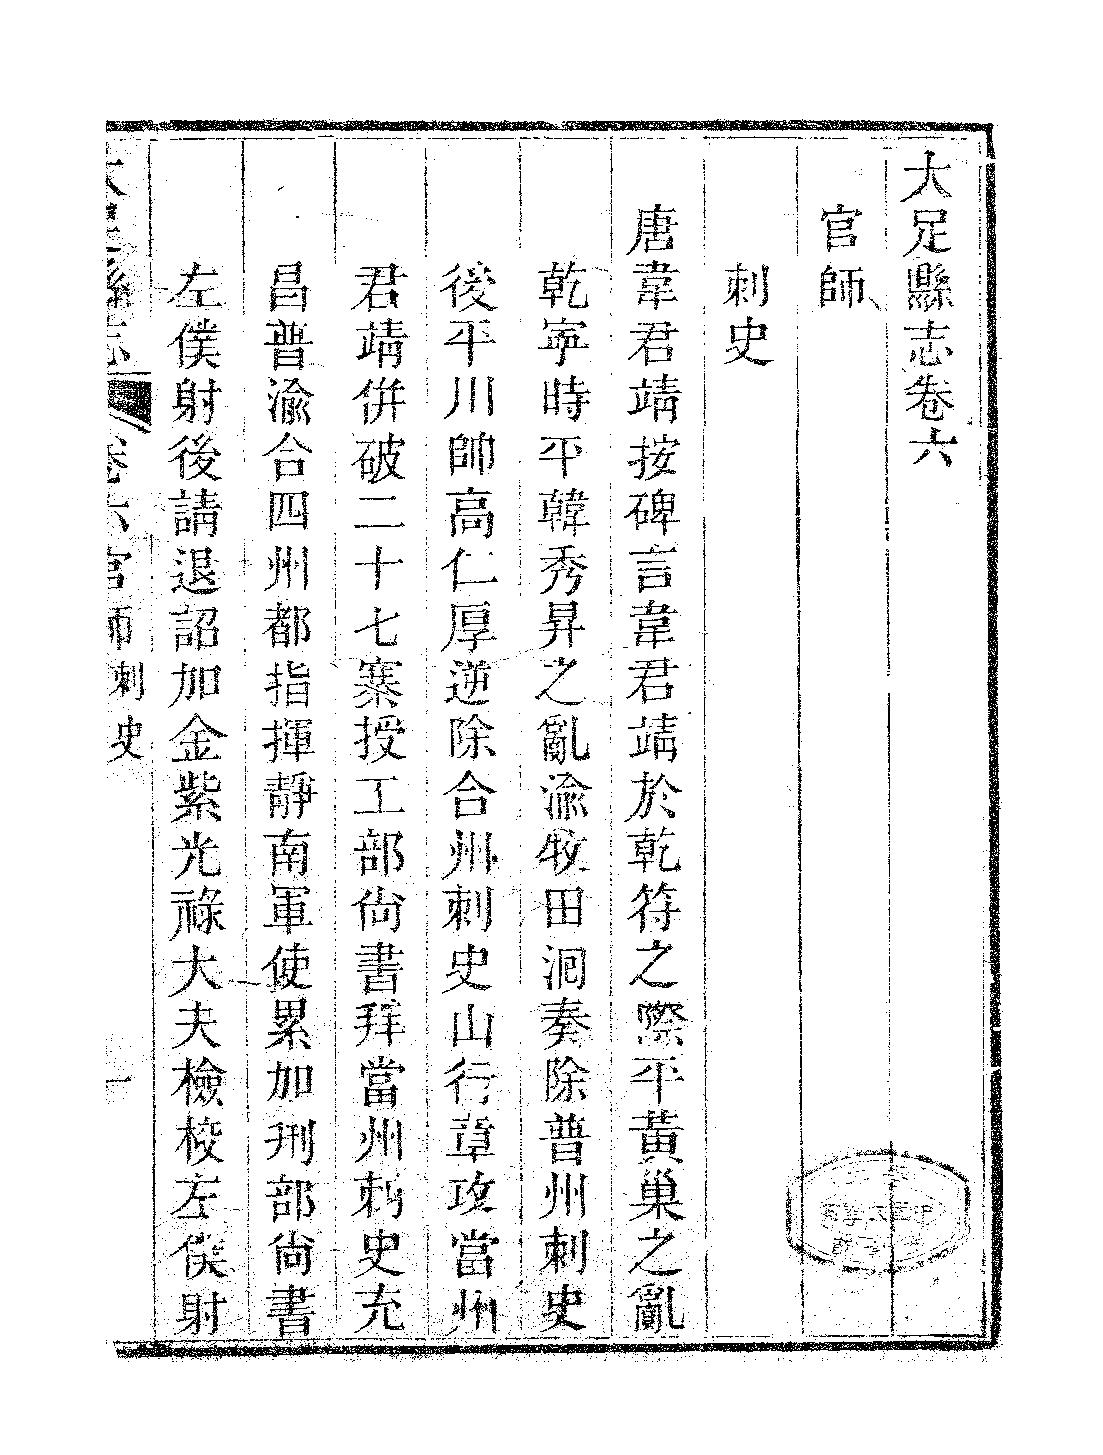 大足縣志卷六
官師
刺史
唐韋君靖按碑言韋君靖於乾符之際平黃巢之亂
乾寧時平韓秀昇之亂渝牧田泂奏除普州刺史
後平川帥高仁厚逆除合州刺史山行章攻當州
君靖併破二十七寨授工部尙書拜當州刺史充
昌普渝合四州都指揮靜南軍使累加刑部尙書
左僕射後請退詔加金紫光祿大夫檢校左僕射
大足縣志 卷六官師 刺史 一